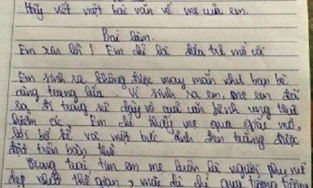 Hãy viết một bài văn về mẹ của em.
Bài làm.
Em xin lỗi! Em chỉ là đứa trẻ mồ côi
Em sinh ra không được may mắn như bạn bè
cùng trang lứa. Vì sinh ra em, mẹ em đã
ra đi trong sự
của căn bệnh ung thư
ác. Em chỉ thấy mẹ qua giấc mơ,
bởi bố tôi và một bức ảnh đen trắng được
đặt trên bàn thờ
Trong trái tim em mẹ luôn là người phụ nữ
đẹp nhất thế gian, mặc dù chỉ qua